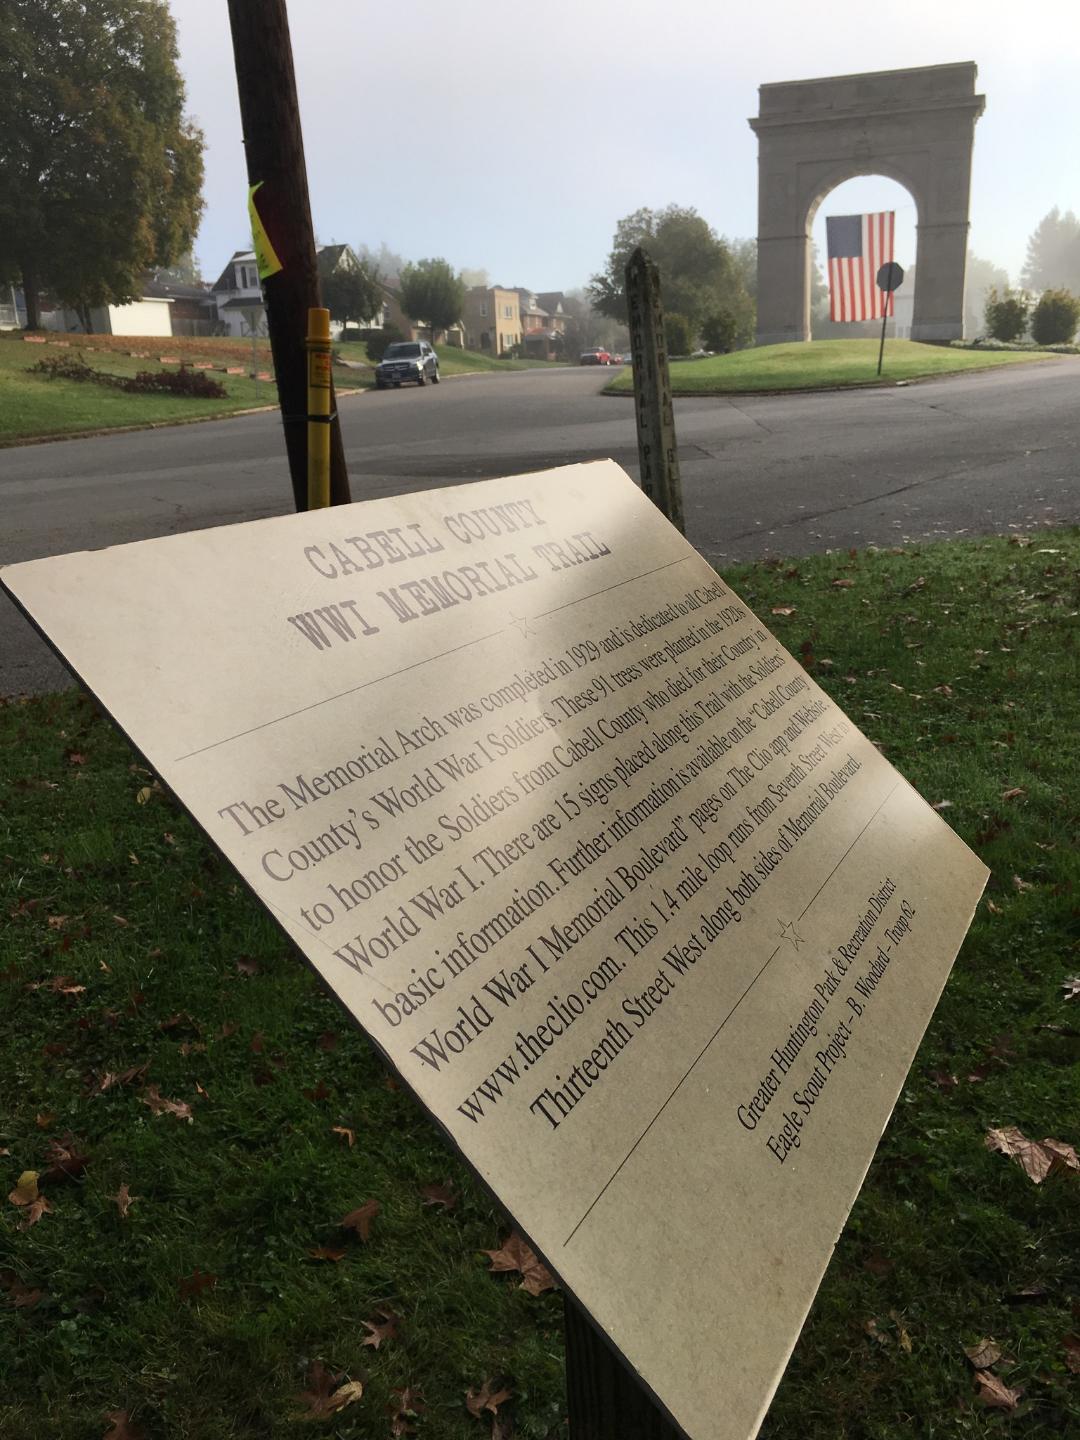 CABELL COUNTY
WWI MEMORIAL TRAIL
The Memorial Arch was completed in 1929 and is dedicated to all Cabell
County's World War I Soldiers. These 91 trees were planted in the 1920s
to honor the Soldiers from Cabell County who died for their Country in
World War I. There are 15 signs placed along this Trail with the Soldiers'
basic information. Further information is available on the "Cabell County
World War I Memorial Boulevard" pages on The Clio app and Website
www.theclio.com. This 1.4 mile loop runs from Seventh Street West to
Thirteenth Street West along both sides of Memorial Boulevard.
Greater Huntington Park & Recreation District
Eagle Scout Project – B. Woodard – Troop 62